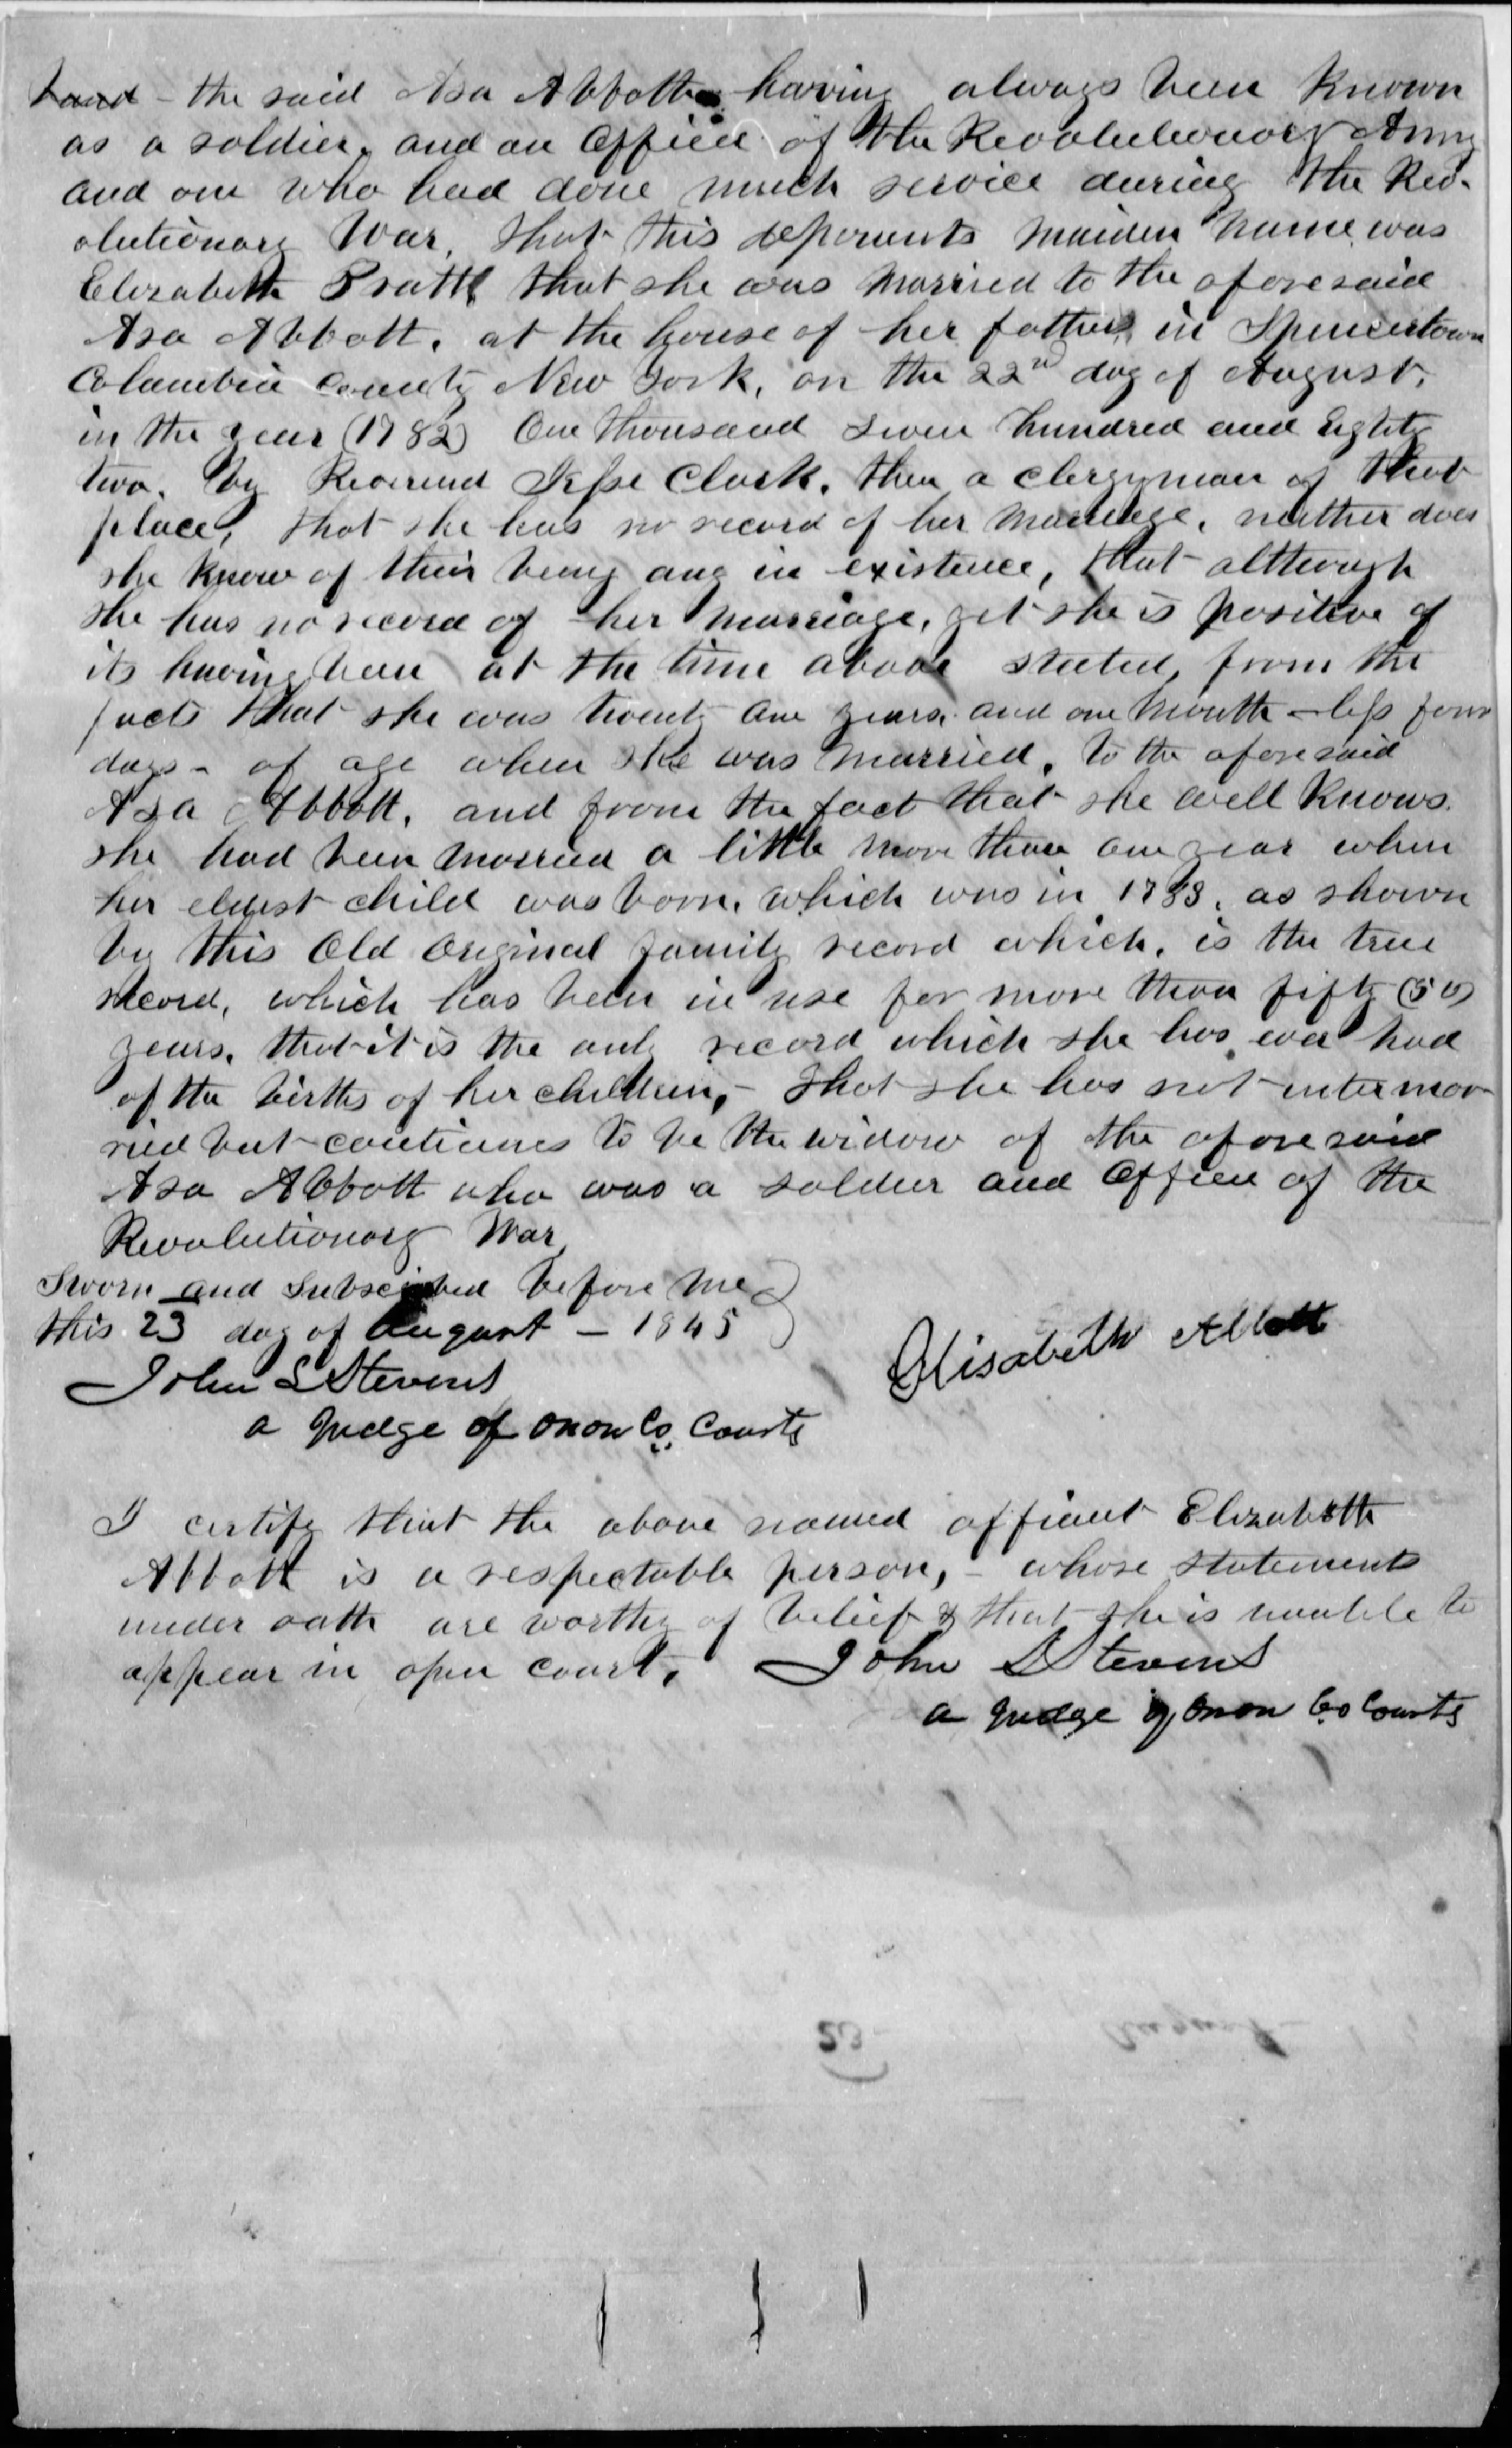 band - the said Asa Abbott having always been known
as a soldier, and an Officer of the Revolutionary Army
and one who had done much service during the Rev-
olutionary War, that this deponents maiden name was
Elizabeth Pratt that she was married to the aforesaid
Asa Abbott, at the house of her father, in Spencertown
Columbia County New York, on the 22nd day of August,
in the year (1782) One thousand Seven hundred and Eighty
two, by Reverend Jesse Clark, then a clergyman of that
place, that she has no record of her marriage, neither does
she know of their being any in existence, that although
she has no record of her marriage, yet she is positive of
its having been at the time above stated, from the
facts that she was twenty one years and one month - less four
days - of age when she was married, to the aforesaid
Asa Abbott, and from the fact that she well knows
she had been married a little more than one year when
her eldest child was born, which was in 1783, as shown
by this Old Original family record which, is the true
record, which has been in use for more than fifty (50)
years, that it is the only record which she has ever had
of the births of her children, - that she has not intermar-
ried but continues to be the widow of the aforesaid
Asa Abbott who was a soldier and Officer of the
Revolutionary War
Sworn and Subscribed before me
this 23 day of August - 1845
Elisabeth Abbott
John L Stevens
a Judge of Onon Co. Courts
I certify that the above named affiant Elizabeth
Abbott is a respectable person, - whose statements
under oath are worthy of belief & that she is unable to
appear in open court, John L Stevens
a Judge of Onon Co Courts